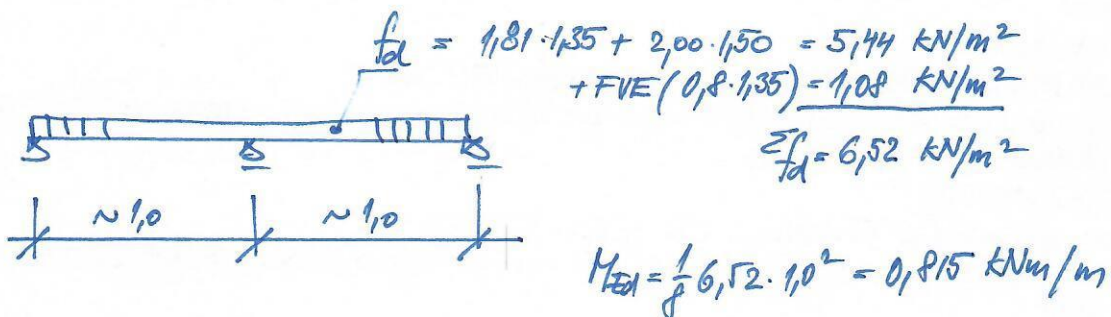 fd = 1,81·1,35 + 2,00·1,50 = 5,44 kN/m²
+ FVE (0,8·1,35) = 1,08 kN/m²
Σfd = 6,52 kN/m²
~ 1,0 ~ 1,0
MEd = 1/8 6,52·1,0² = 0,815 kNm/m